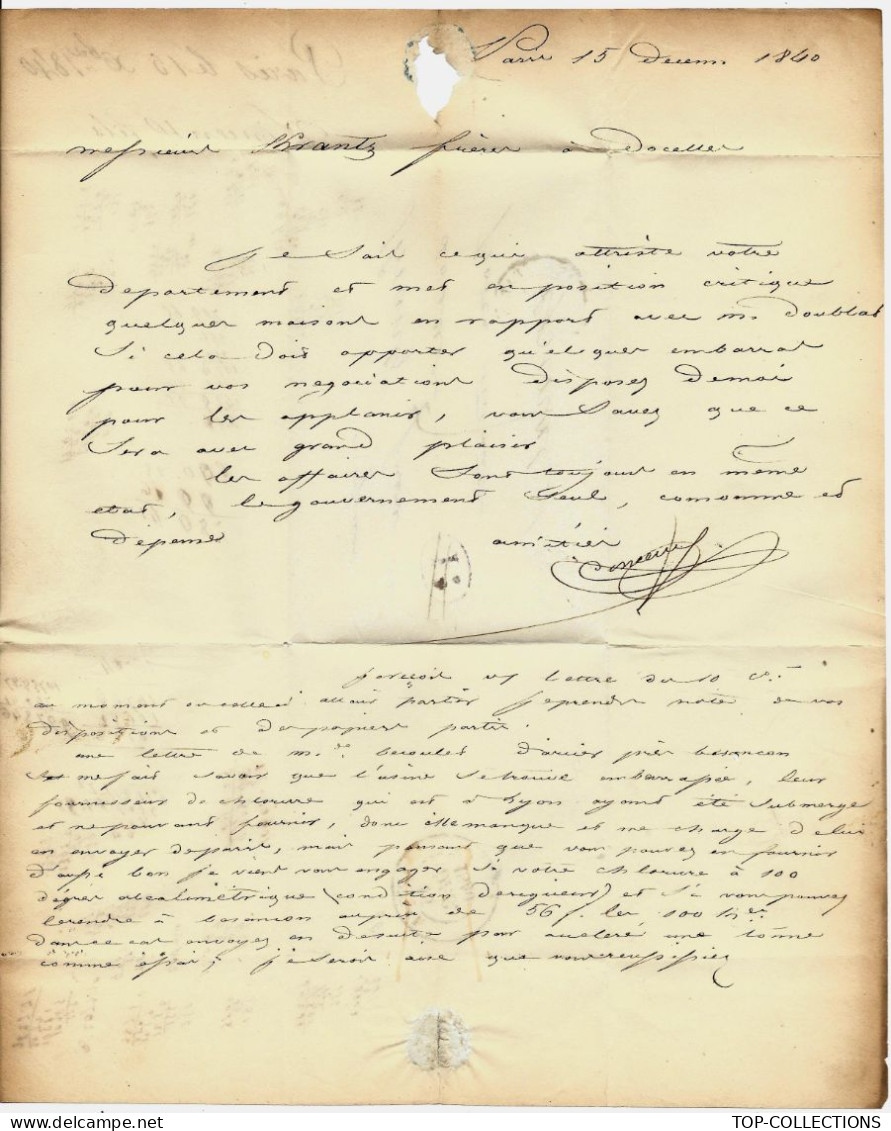 Paris 15 Decem. 1840
messieurs Krantz frères à Docelles
Je sait cequi attriste votre
departement et met en position critique
quelques maisons en rapport avec mr Doublat
Si cela doit apporter quelques embarras
pour vos negociations disposez demoi
pour les applanir, vous savez que ce
sera avec grand plaisir
les affaires sont toujours en même
etat, le gouvernement seul, consomme et
dépense amitiés
jereçois vs lettre du 10 ct.
au moment ou celleci allait partir jeprendr note de vos
dispositions et des papiers partir.
une lettre de md. d'arcier près besancon
me fait savoir que l'usine setrouve embarrassée, leur
fournisseur de chlorure qui est à Lyon ayant été submergé
et nepouvant fournir, donc ellemanque et me charge delui
en envoyer deparis, mais pensant que vous pouvez en fournir
d'aussi bon je viens vous engager si votre chlorure à 100
dégrés alcalimétrique (condition derigueur) et si vous pouvez
lerendre à besancon auprix de 56 f. les 100 k
danscecas envoyez en desuite par acceleré une tonne
comme essai, jeserois aise que vousreussissiez
TOP-COLLECTIONS